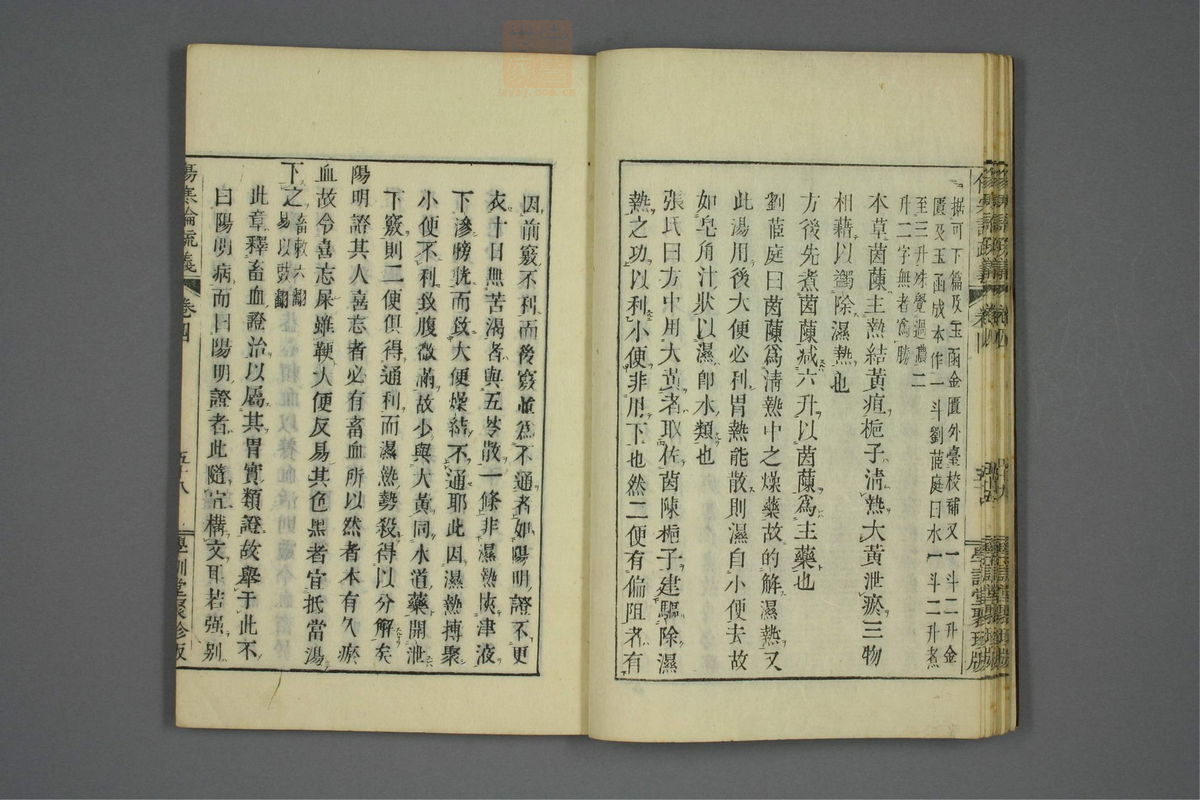 據可下篇及玉函金匱外臺校補又一斗二升金
匱及玉函成本作一斗劉茝庭曰水一斗二升煮
至三升殊覺過濃二
升二字無者爲勝
本草茵蔯主熱結黃疸梔子淸熱大黃泄瘀三物
相藉以蠲除濕熱也
方後先煮茵蔯減六升以茵蔯爲主藥也
劉茝庭曰茵蔯爲淸熱中之燥藥故的解濕熱又
此湯用後大便必利胃熱能散則濕自小便去故
如皂角汁狀以濕卽水類也
張氏曰方中用大黃者取佐茵陳梔子建驅除濕
熱之功以利小便非用下也然二便有偏阻者有
因前竅不利而後竅並爲不通者如陽明證不更
衣十日無苦渴者與五苓散一條非濕熱挾津液
下滲膀胱而致大便燥結不通耶此因濕熱搏聚
小便不利致腹微滿故少與大黃同水道藥開泄
下竅則二便俱得通利而濕熱勢殺得以分解矣
陽明證其人喜忘者必有畜血所以然者本有久瘀
血故令喜忘屎雖鞕大便反易其色黑者宜抵當湯
下之
畜敕六翻
易以豉翻
此章釋畜血證治以屬其胃實類證故舉于此不
曰陽明病而曰陽明證者此隨宜構文耳若强别
傷寒論疏義
卷四
五十八
學訓堂聚珍版